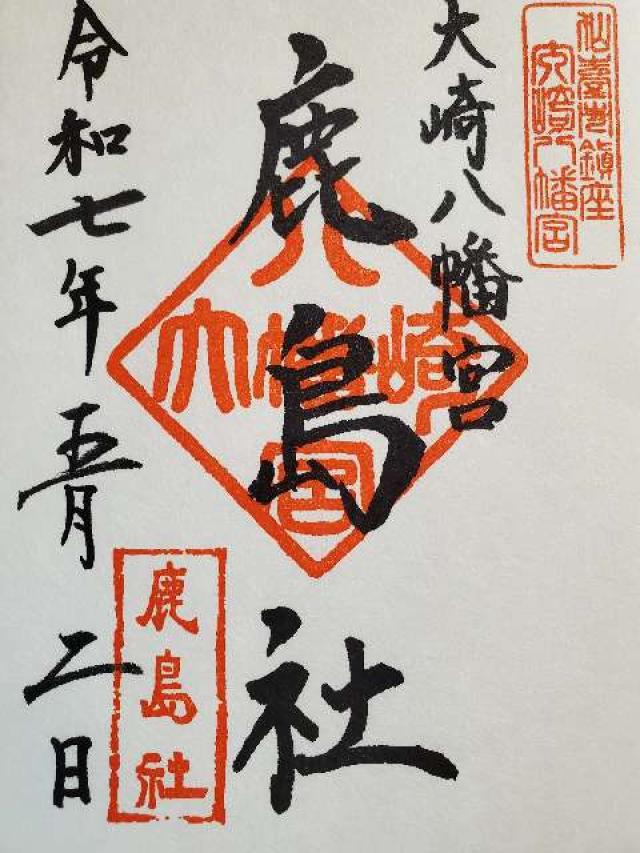 仙臺市鎮座
大崎八幡宮
大崎八幡宮
鹿島社
八
大幡崎
宮
令和七年五月二日
鹿島社